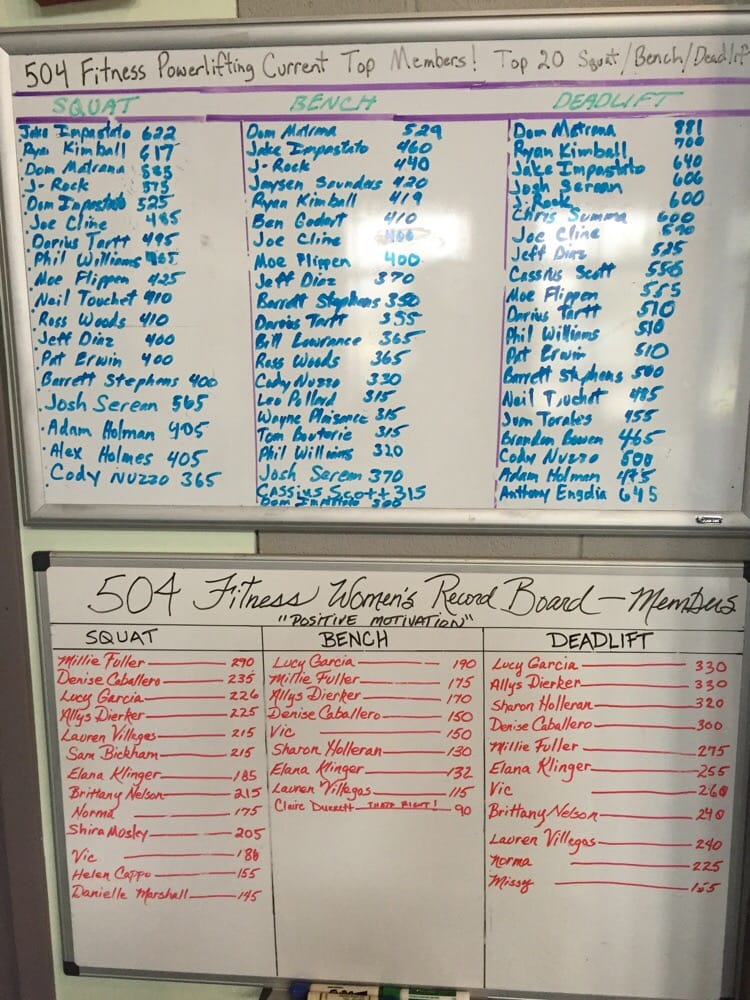 504 Fitness Powerlifting Current Top Members! Top 20 Squat/Bench/Deadlift
SQUAT
Jake Impastato 622
Ryan Kimball 617
Dom Matrana 585
J-Rock 575
Dom Impastato 525
Joe Cline 485
Darius Tartt 495
Phil Williams 465
Moe Flippen 425
Neil Touchet 410
Ross Woods 410
Jeff Diaz 400
Pat Erwin 400
Barrett Stephens 400
Josh Serean 565
Adam Holman 405
Alex Holmes 405
Cody Nuzzo 365
BENCH
Dom Matrana 529
Jake Impastato 460
J-Rock 440
Jaysen Saunders 420
Ryan Kimball 419
Ben Godart 410
Joe Cline 400
Moe Flippen 400
Jeff Diaz 370
Barrett Stephens 350
Darius Tartt 355
Bill Lawrance 365
Ross Woods 365
Cody Nuzzo 330
Leo Pollard 315
Wayne Plaisance 315
Tom Bouterie 315
Phil Williams 320
Josh Serean 370
Cassius Scott 315
Dom Impastato 300
DEADLIFT
Dom Matrana 881
Ryan Kimball 700
Jake Impastato 640
Josh Serean 606
J-Rock 600
Chris Summa 600
Joe Cline
Jeff Diaz 525
Cassius Scott 550
Moe Flippen 555
Darius Tartt 510
Phil Williams 510
Pat Erwin 510
Barrett Stephens 500
Neil Touchet 485
Jum Torales 455
Brandon Bowen 465
Cody Nuzzo 500
Adam Holman 475
Anthony Engdia 645
504 Fitness Women's Record Board - Members
"POSITIVE MOTIVATION"
SQUAT
Millie Fuller 290
Denise Caballero 235
Lucy Garcia 226
Allys Dierker 225
Lauren Villegas 215
Sam Bickham 215
Elana Klinger 185
Brittany Nelson 215
Norma 175
Shira Mosley 205
Vic 180
Helen Cappo 155
Danielle Marshall 145
BENCH
Lucy Garcia 190
Millie Fuller 175
Allys Dierker 170
Denise Caballero 150
Vic 150
Sharon Holleran 130
Elana Klinger 132
Lauren Villegas 115
Claire Durrett THATS RIGHT! 90
DEADLIFT
Lucy Garcia 330
Allys Dierker 330
Sharon Holleran 320
Denise Caballero 300
Millie Fuller 275
Elana Klinger 255
Vic 260
Brittany Nelson 240
Lauren Villegas 240
Norma 225
Missy 155